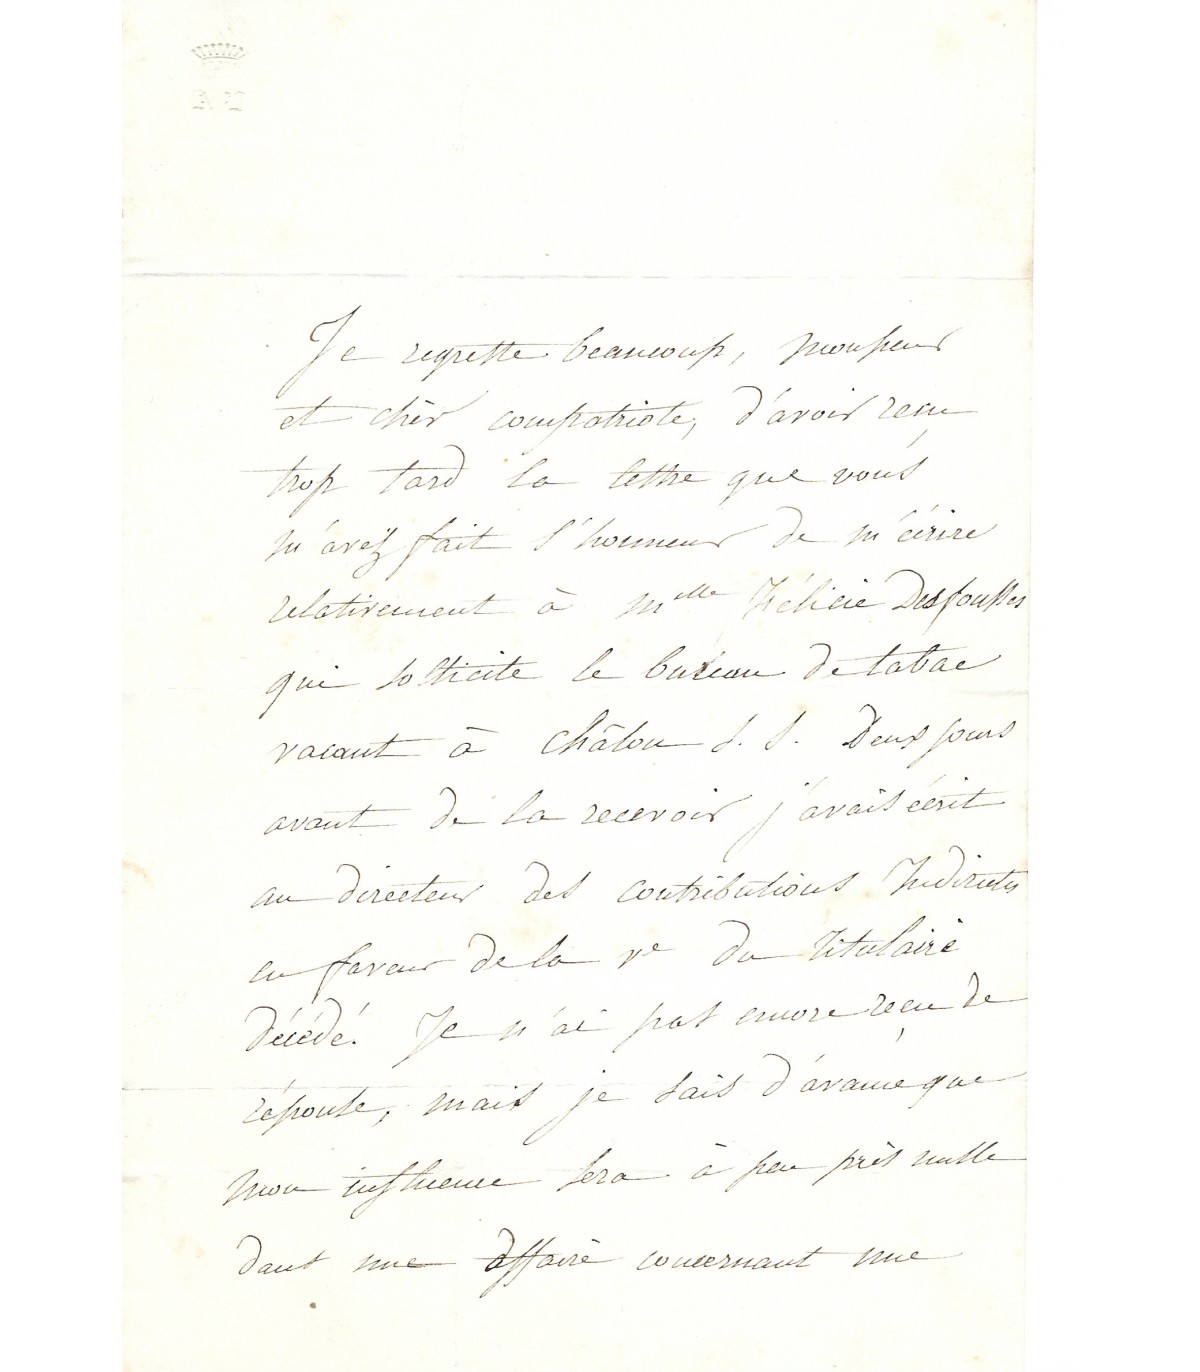 Je regrette beaucoup, Monsieur
et chèr compatriote, d'avoir reçu
trop tard la lettre que vous
m'avez fait l'honneur de m'écrire
relativement à Melle Félicie Desfousses
qui sollicite le bureau de tabac
vacant à Châlon S. S. Deux jours
avant de la recevoir j'avais écrit
au directeur des contributions Indirectes
en faveur de la Ve du Titulaire
décédé. Je n'ai pas encore reçu de
réponse, mais je sais d'avance que
mon influence sera à peu près nulle
dans une affaire concernant une